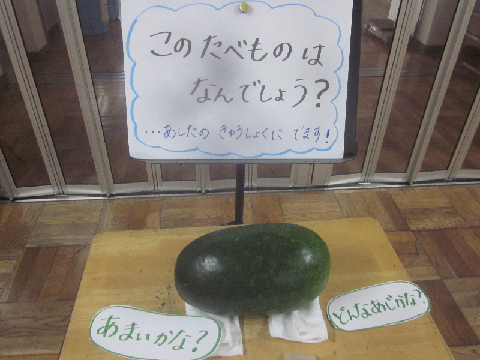 このたべものは
なんでしょう?
...あしたの きゅうしょくに でます!
あまいかな?
どんなあじかな?